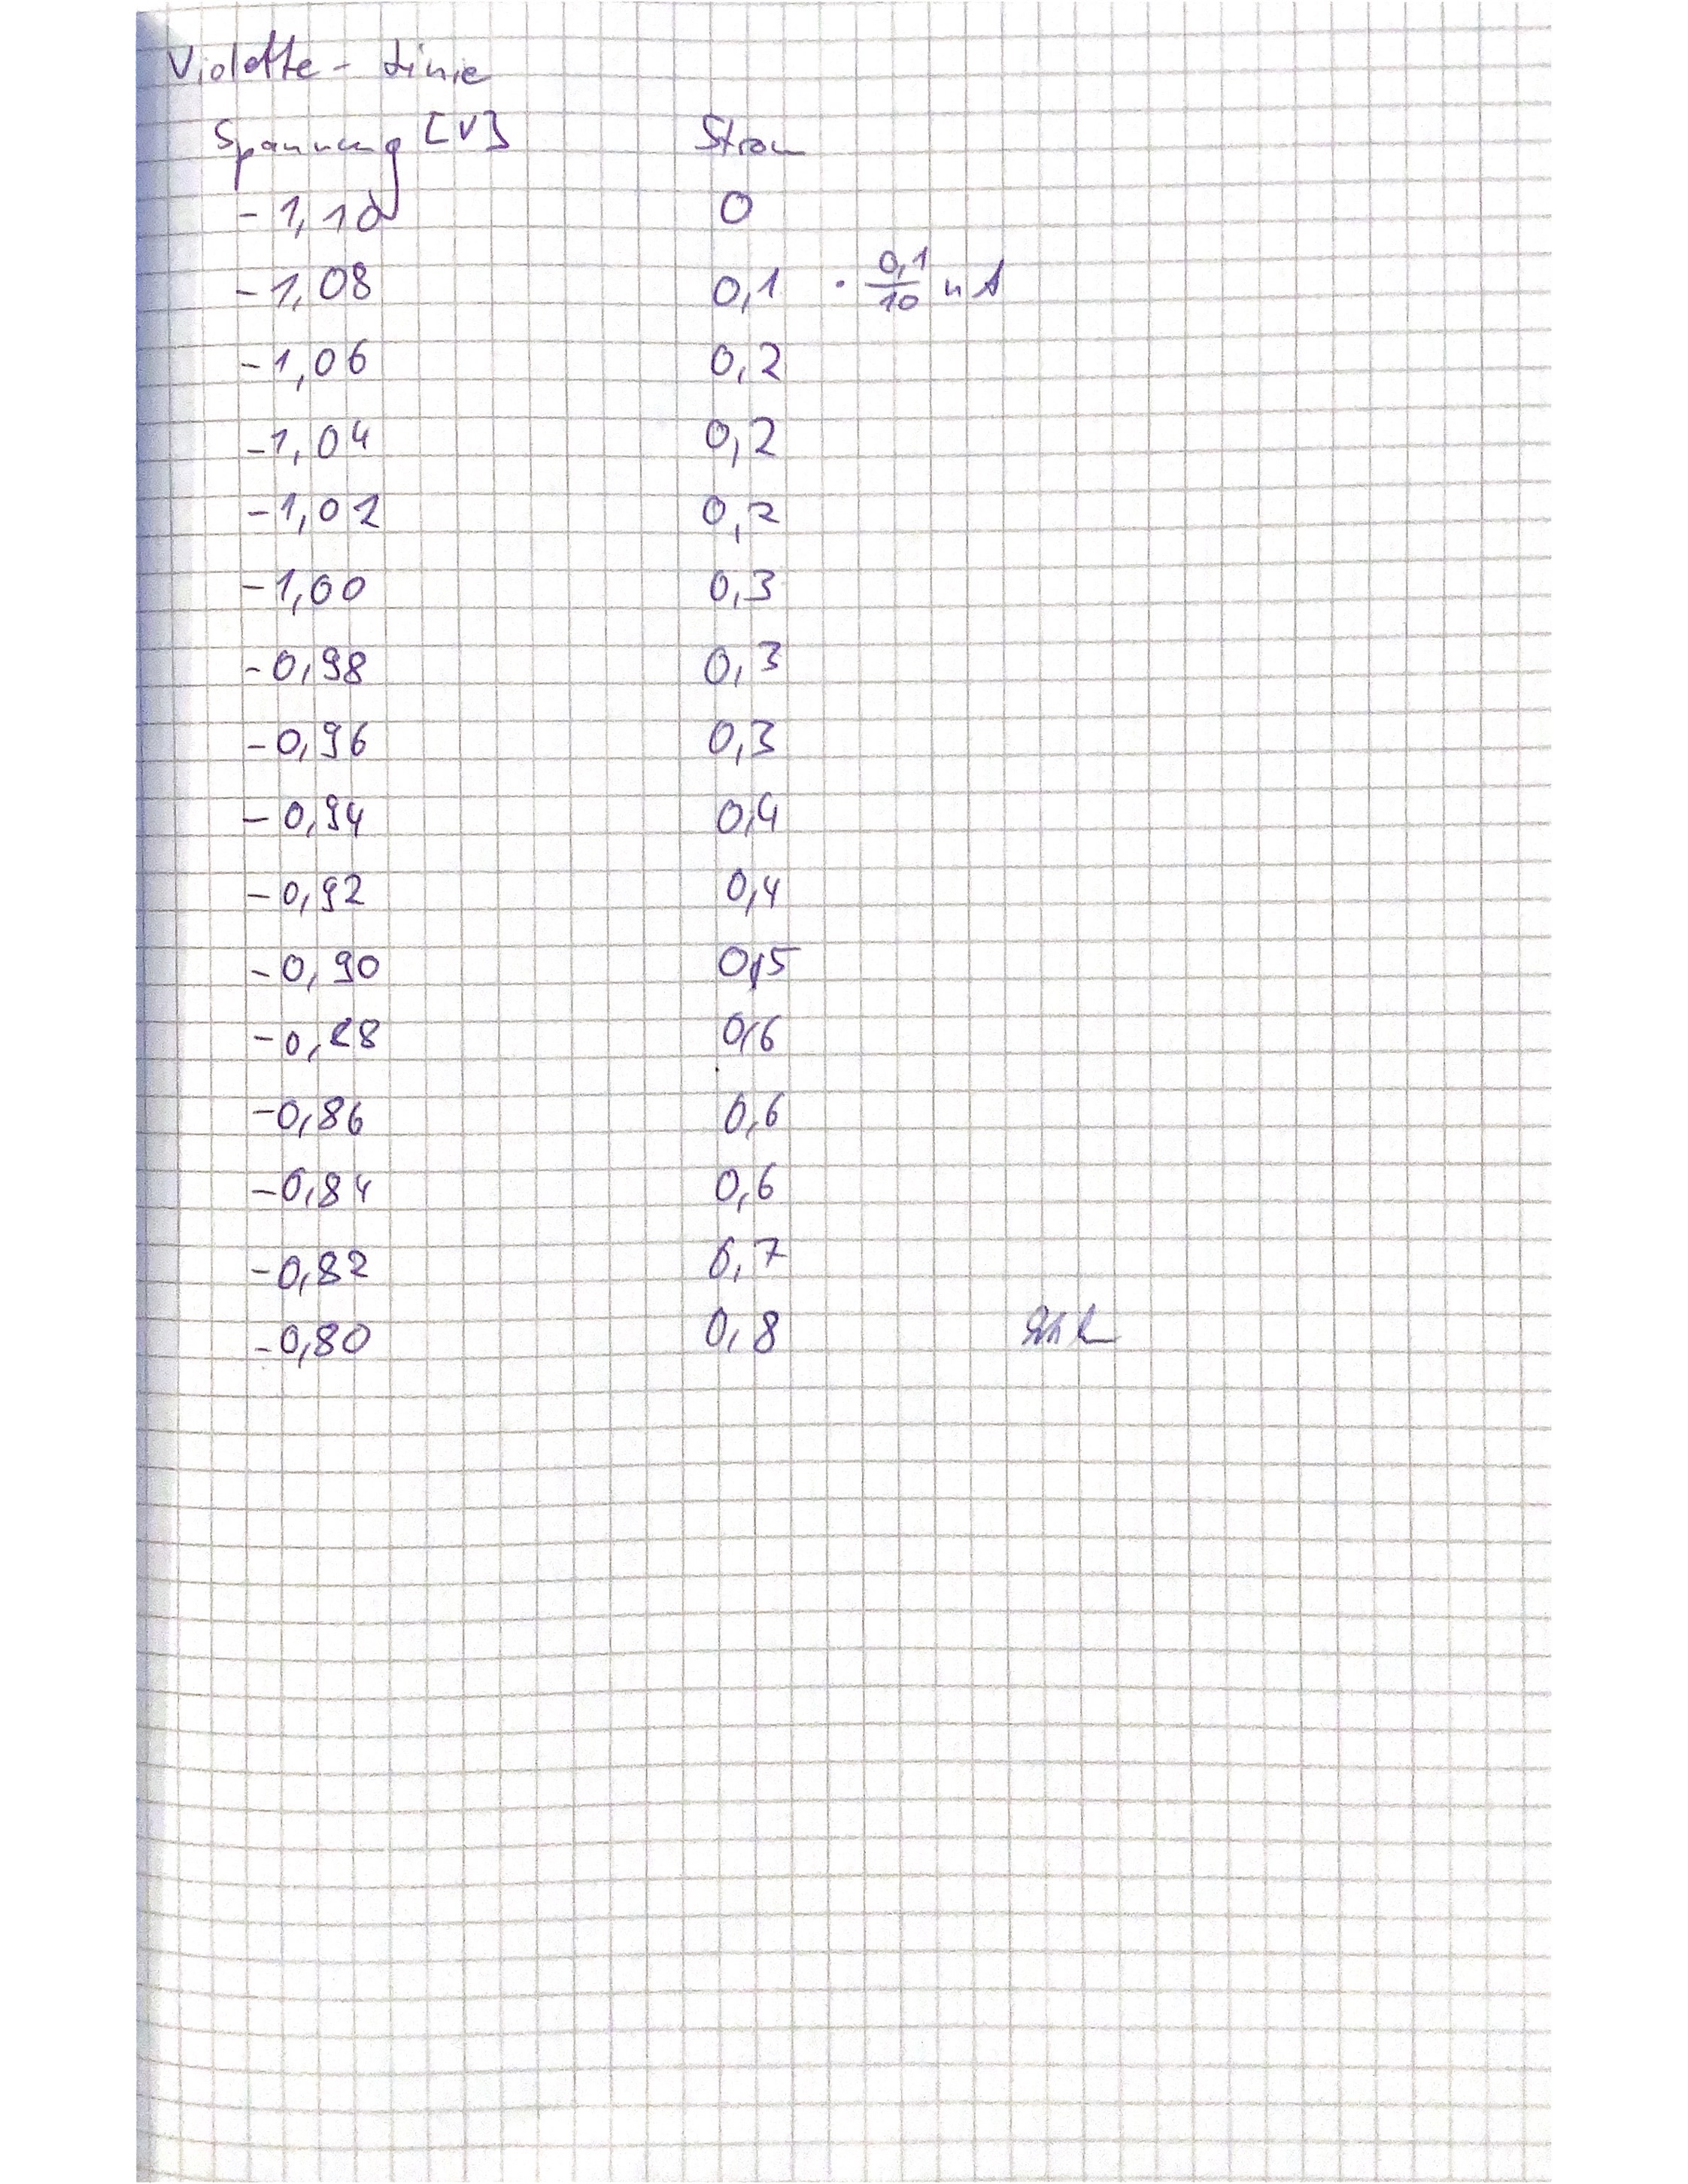 Violette - Linie
Spannung [V] Strom
-1,10 0
-1,08 0,1 · 0,1/10 nA
-1,06 0,2
-1,04 0,2
-1,02 0,2
-1,00 0,3
-0,98 0,3
-0,96 0,3
-0,94 0,4
-0,92 0,4
-0,90 0,5
-0,88 0,6
-0,86 0,6
-0,84 0,6
-0,82 0,7
-0,80 0,8